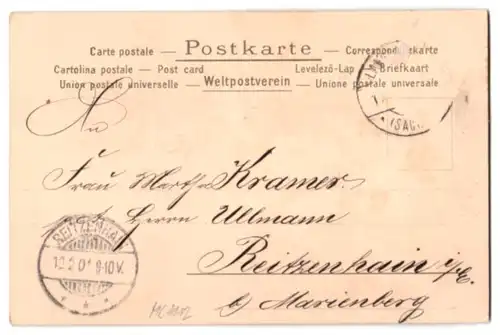 Carte postale — Postkarte — Correspondenzkarte
Cartolina postale — Post card Levelező-Lap — Briefkaart
Union postale universelle — Weltpostverein — Unione postale universale
An
Frau Martha Kramer.
Herrn Ullmann
Reitzenhain i/E.
b/ Marienberg
REITZENHAIN
9-10V.
(SACHSEN)